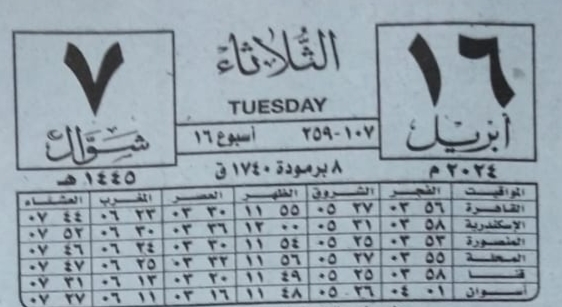 ١٦
أبريل
الثلاثاء
TUESDAY
٧
شوال
١٠٧-٢٥٩ أسبوع ١٦
٢٠٢٤ م ٨ برمودة ١٧٤٠ ق ١٤٤٥ هـ
المواقيت الفجر الشروق الظهر العصر المغرب العشاء
القاهرة ٥٦ ٠٣ ٢٧ ٠٥ ٥٥ ١١ ٣٠ ٠٣ ٢٣ ٠٦ ٤٤ ٠٧
الإسكندرية ٥٨ ٠٣ ٣١ ٠٥ ٠٠ ١٢ ٣٦ ٠٣ ٣٠ ٠٦ ٥٢ ٠٧
المنصورة ٥٣ ٠٣ ٢٥ ٠٥ ٥٤ ١١ ٣٠ ٠٣ ٢٤ ٠٦ ٤٦ ٠٧
المحلة ٥٥ ٠٣ ٢٧ ٠٥ ٥٦ ١١ ٣٢ ٠٣ ٢٥ ٠٦ ٤٧ ٠٧
قنا ٥٨ ٠٣ ٢٥ ٠٥ ٤٩ ١١ ٢٠ ٠٣ ١٣ ٠٦ ٣١ ٠٧
أسوان ٠١ ٠٤ ٢٦ ٠٥ ٤٨ ١١ ١٦ ٠٣ ١١ ٠٦ ٢٧ ٠٧